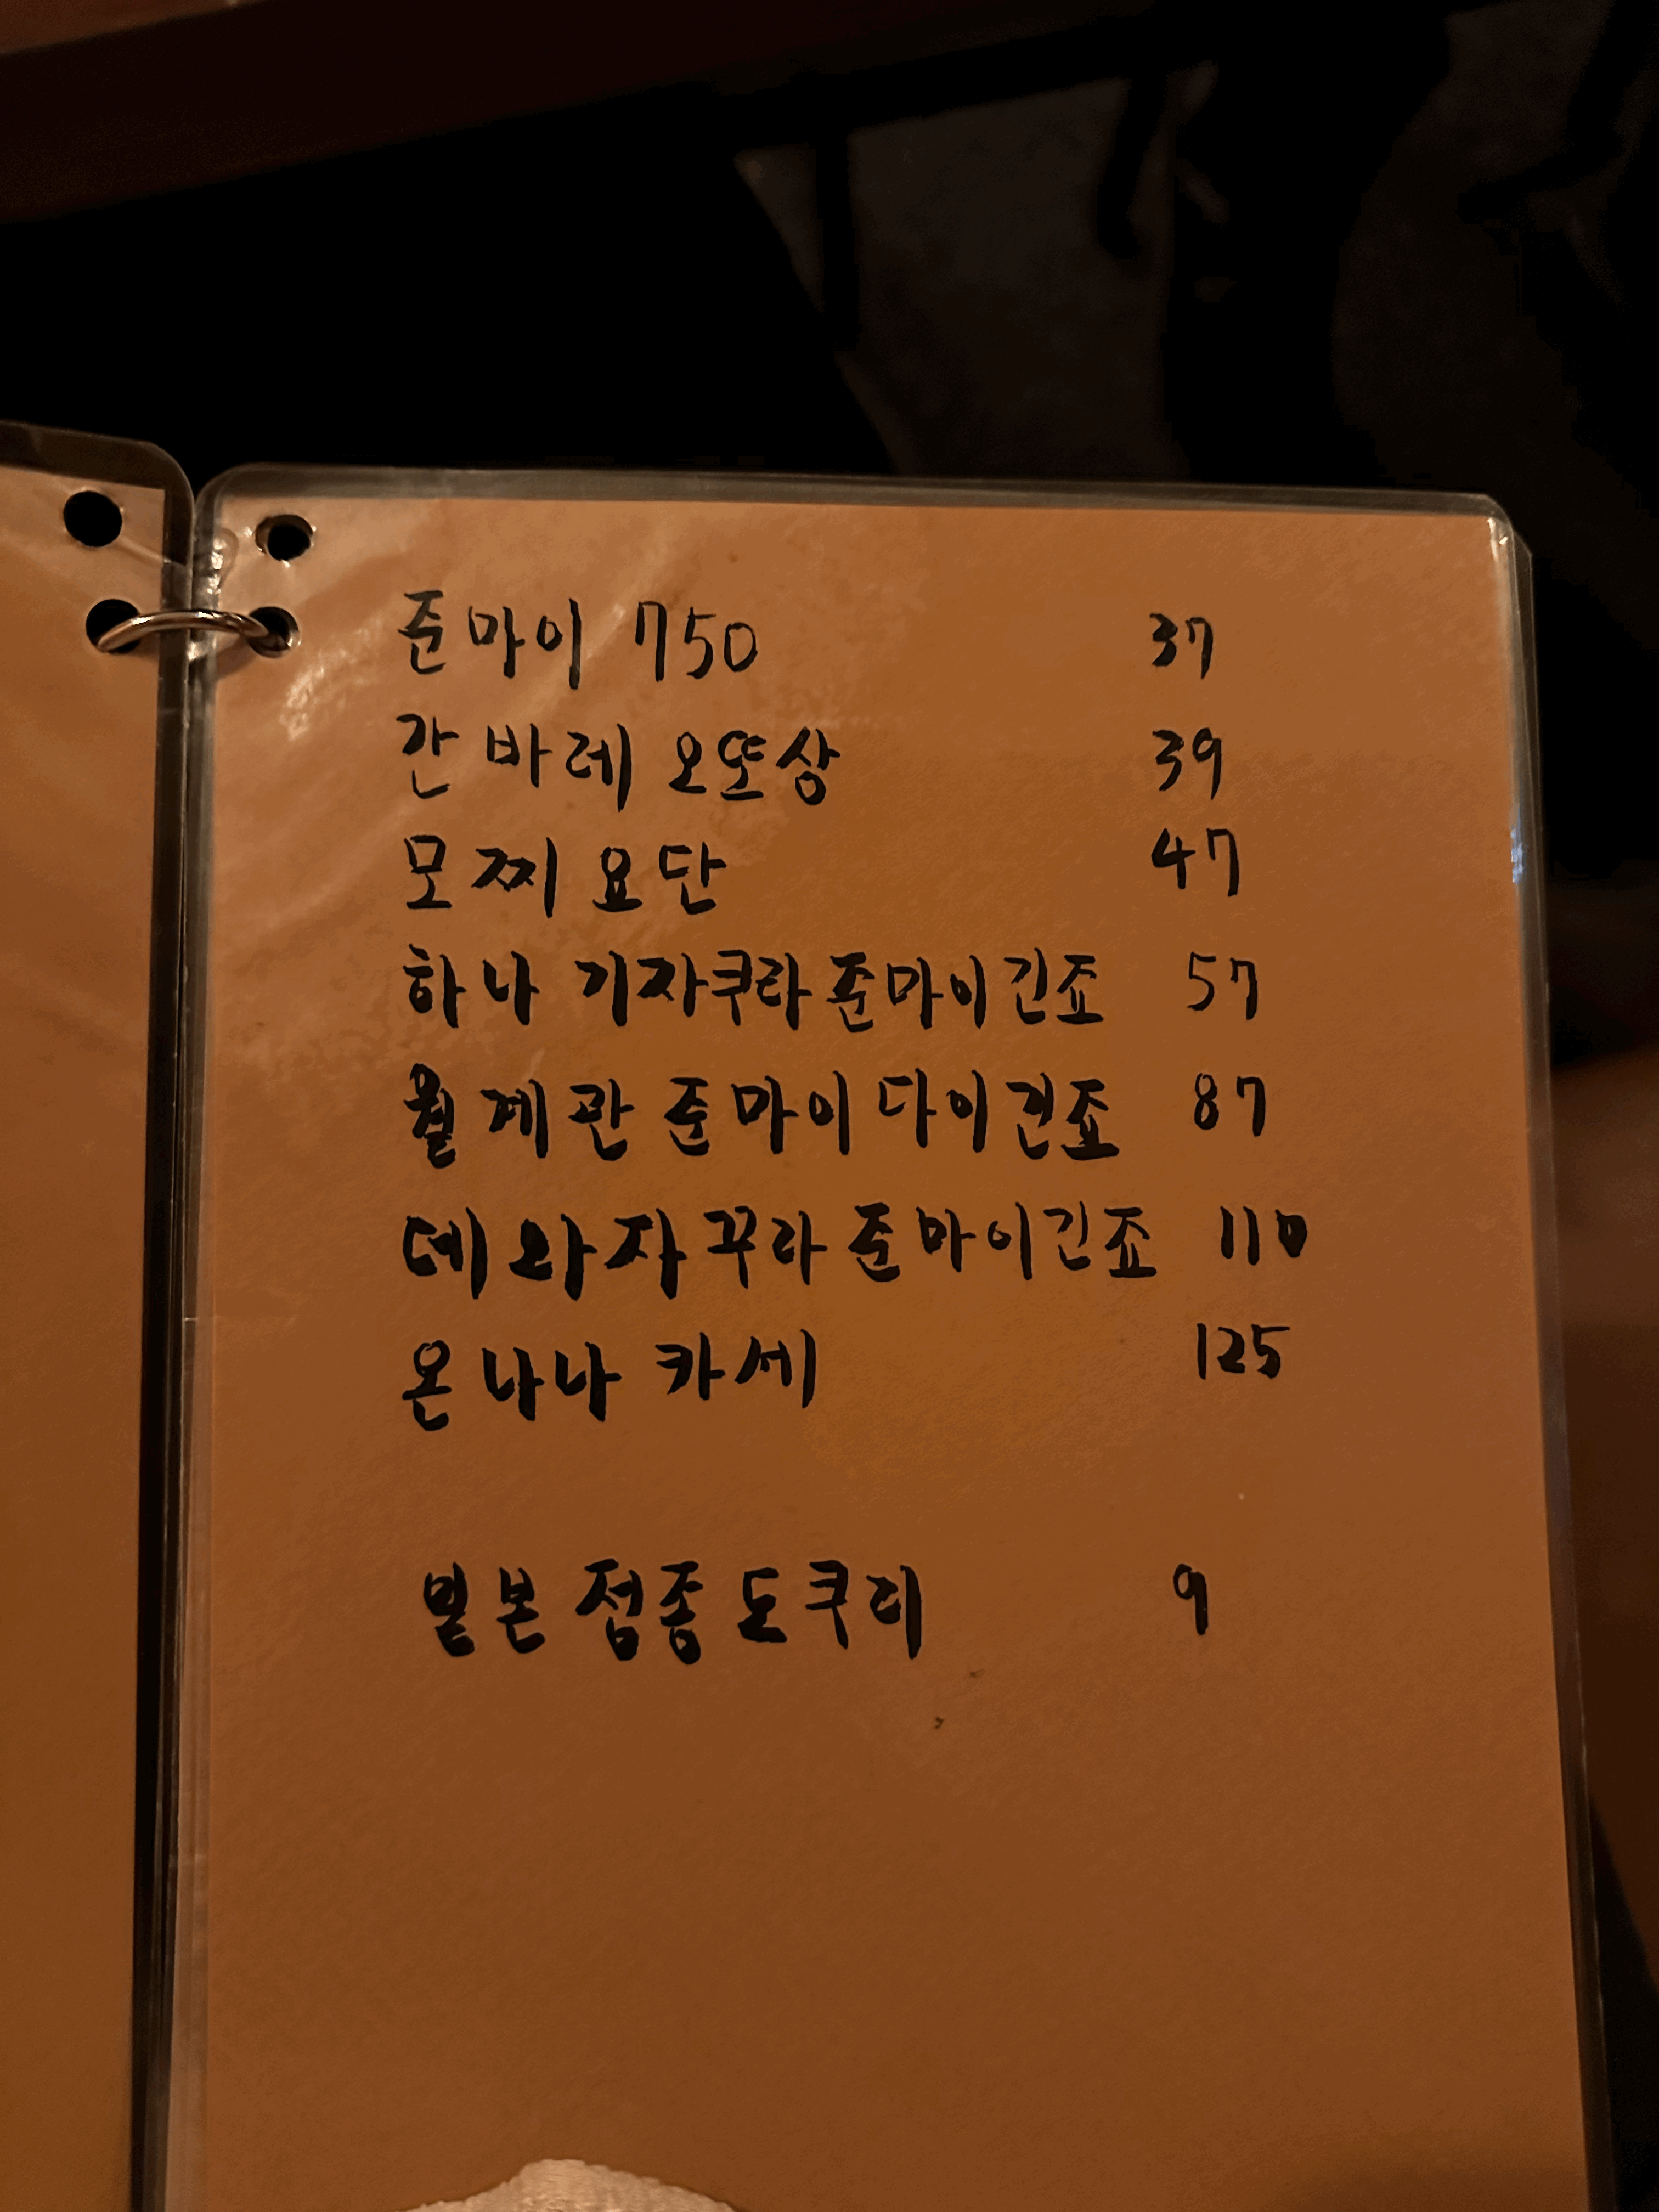 준마이 750 37
간바레 오또상 39
모찌요단 47
하나 기자쿠라 준마이긴죠 57
월계관 준마이 다이긴죠 87
데와자꾸라 준마이긴죠 110
온나나카세 125
일본 정종 도쿠리 9